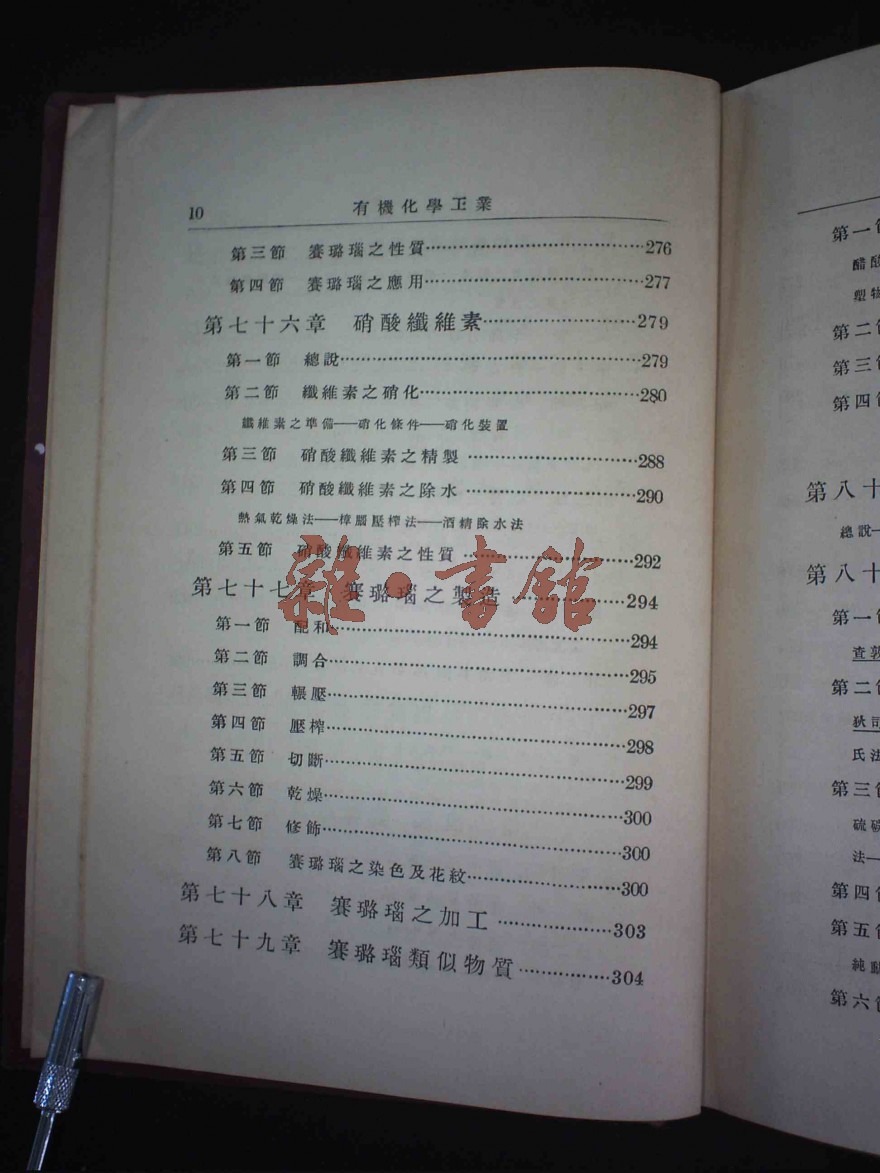 10 有機化學工業
第三節 賽璐瑙之性質……276
第四節 賽璐瑙之應用……277
第七十六章 硝酸纖維素……279
第一節 總說……279
第二節 纖維素之硝化……280
纖維素之準備——硝化條件——硝化裝置
第三節 硝酸纖維素之精製……288
第四節 硝酸纖維素之除水……290
熱氣乾燥法——樟腦壓榨法——酒精除水法
第五節 硝酸纖維素之性質……292
第七十七章 賽璐瑙之製造……294
第一節 配和……294
第二節 調合……295
第三節 輾壓……297
第四節 壓榨……298
第五節 切斷……299
第六節 乾燥……300
第七節 修飾……300
第八節 賽璐瑙之染色及花紋……300
第七十八章 賽璐瑙之加工……303
第七十九章 賽璐瑙類似物質……304
雜·書館
第一
醋酸
塑物
第二
第三
第四
第八十
總說
第八十
第一
查敦
第二
狄司
氏法
第三
硫
法
第四
第五
純
第六